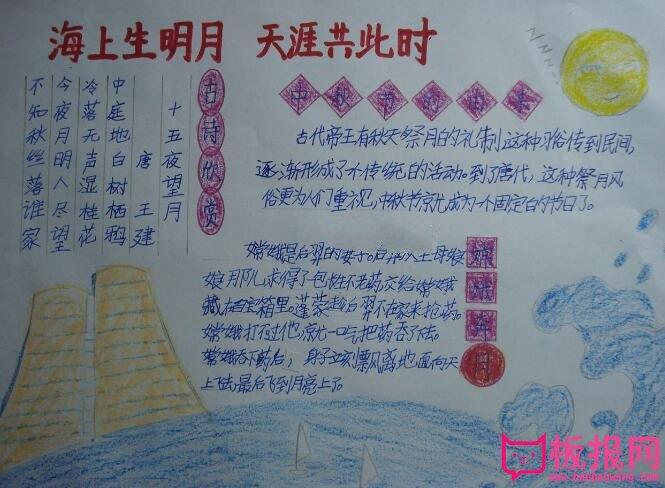 海上生明月 天涯共此时
古诗欣赏
十五夜望月
唐 王建
中庭地白树栖鸦
冷落无声湿桂花
今夜月明人尽望
不知秋丝落谁家
中秋节的由来
古代帝王有秋天祭月的礼制,这种习俗传到民间,
逐渐形成了个传统的活动。到了唐代,这种祭月风
俗更为人们重视,中秋节就成为一个固定的节日了。
嫦娥奔月
嫦娥是后羿的妻子。后羿
王母娘
娘月那儿求得了包性不老药交给嫦娥
藏在百宝箱里。蓬蒙趁后羿不在家来抢药。
嫦娥打不过他,就一口气把药吞了下去。
嫦娥吞下药后,身子立刻飘风离地面向天
上飞去,最后飞到月亮上了。
NNNN
板报网